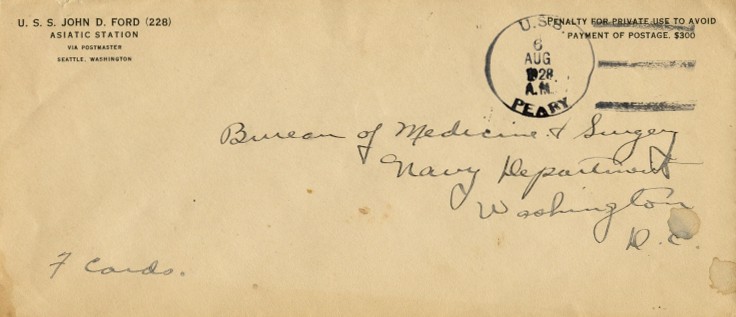 U. S. S. JOHN D. FORD (228)
ASIATIC STATION
VIA POSTMASTER
SEATTLE, WASHINGTON
PENALTY FOR PRIVATE USE TO AVOID
PAYMENT OF POSTAGE, $300
U.S.S.
6
AUG
1928
A.M.
PEARY
Bureau of Medicine & Surgery
Navy Department
Washington
D.C.
7 Cards.